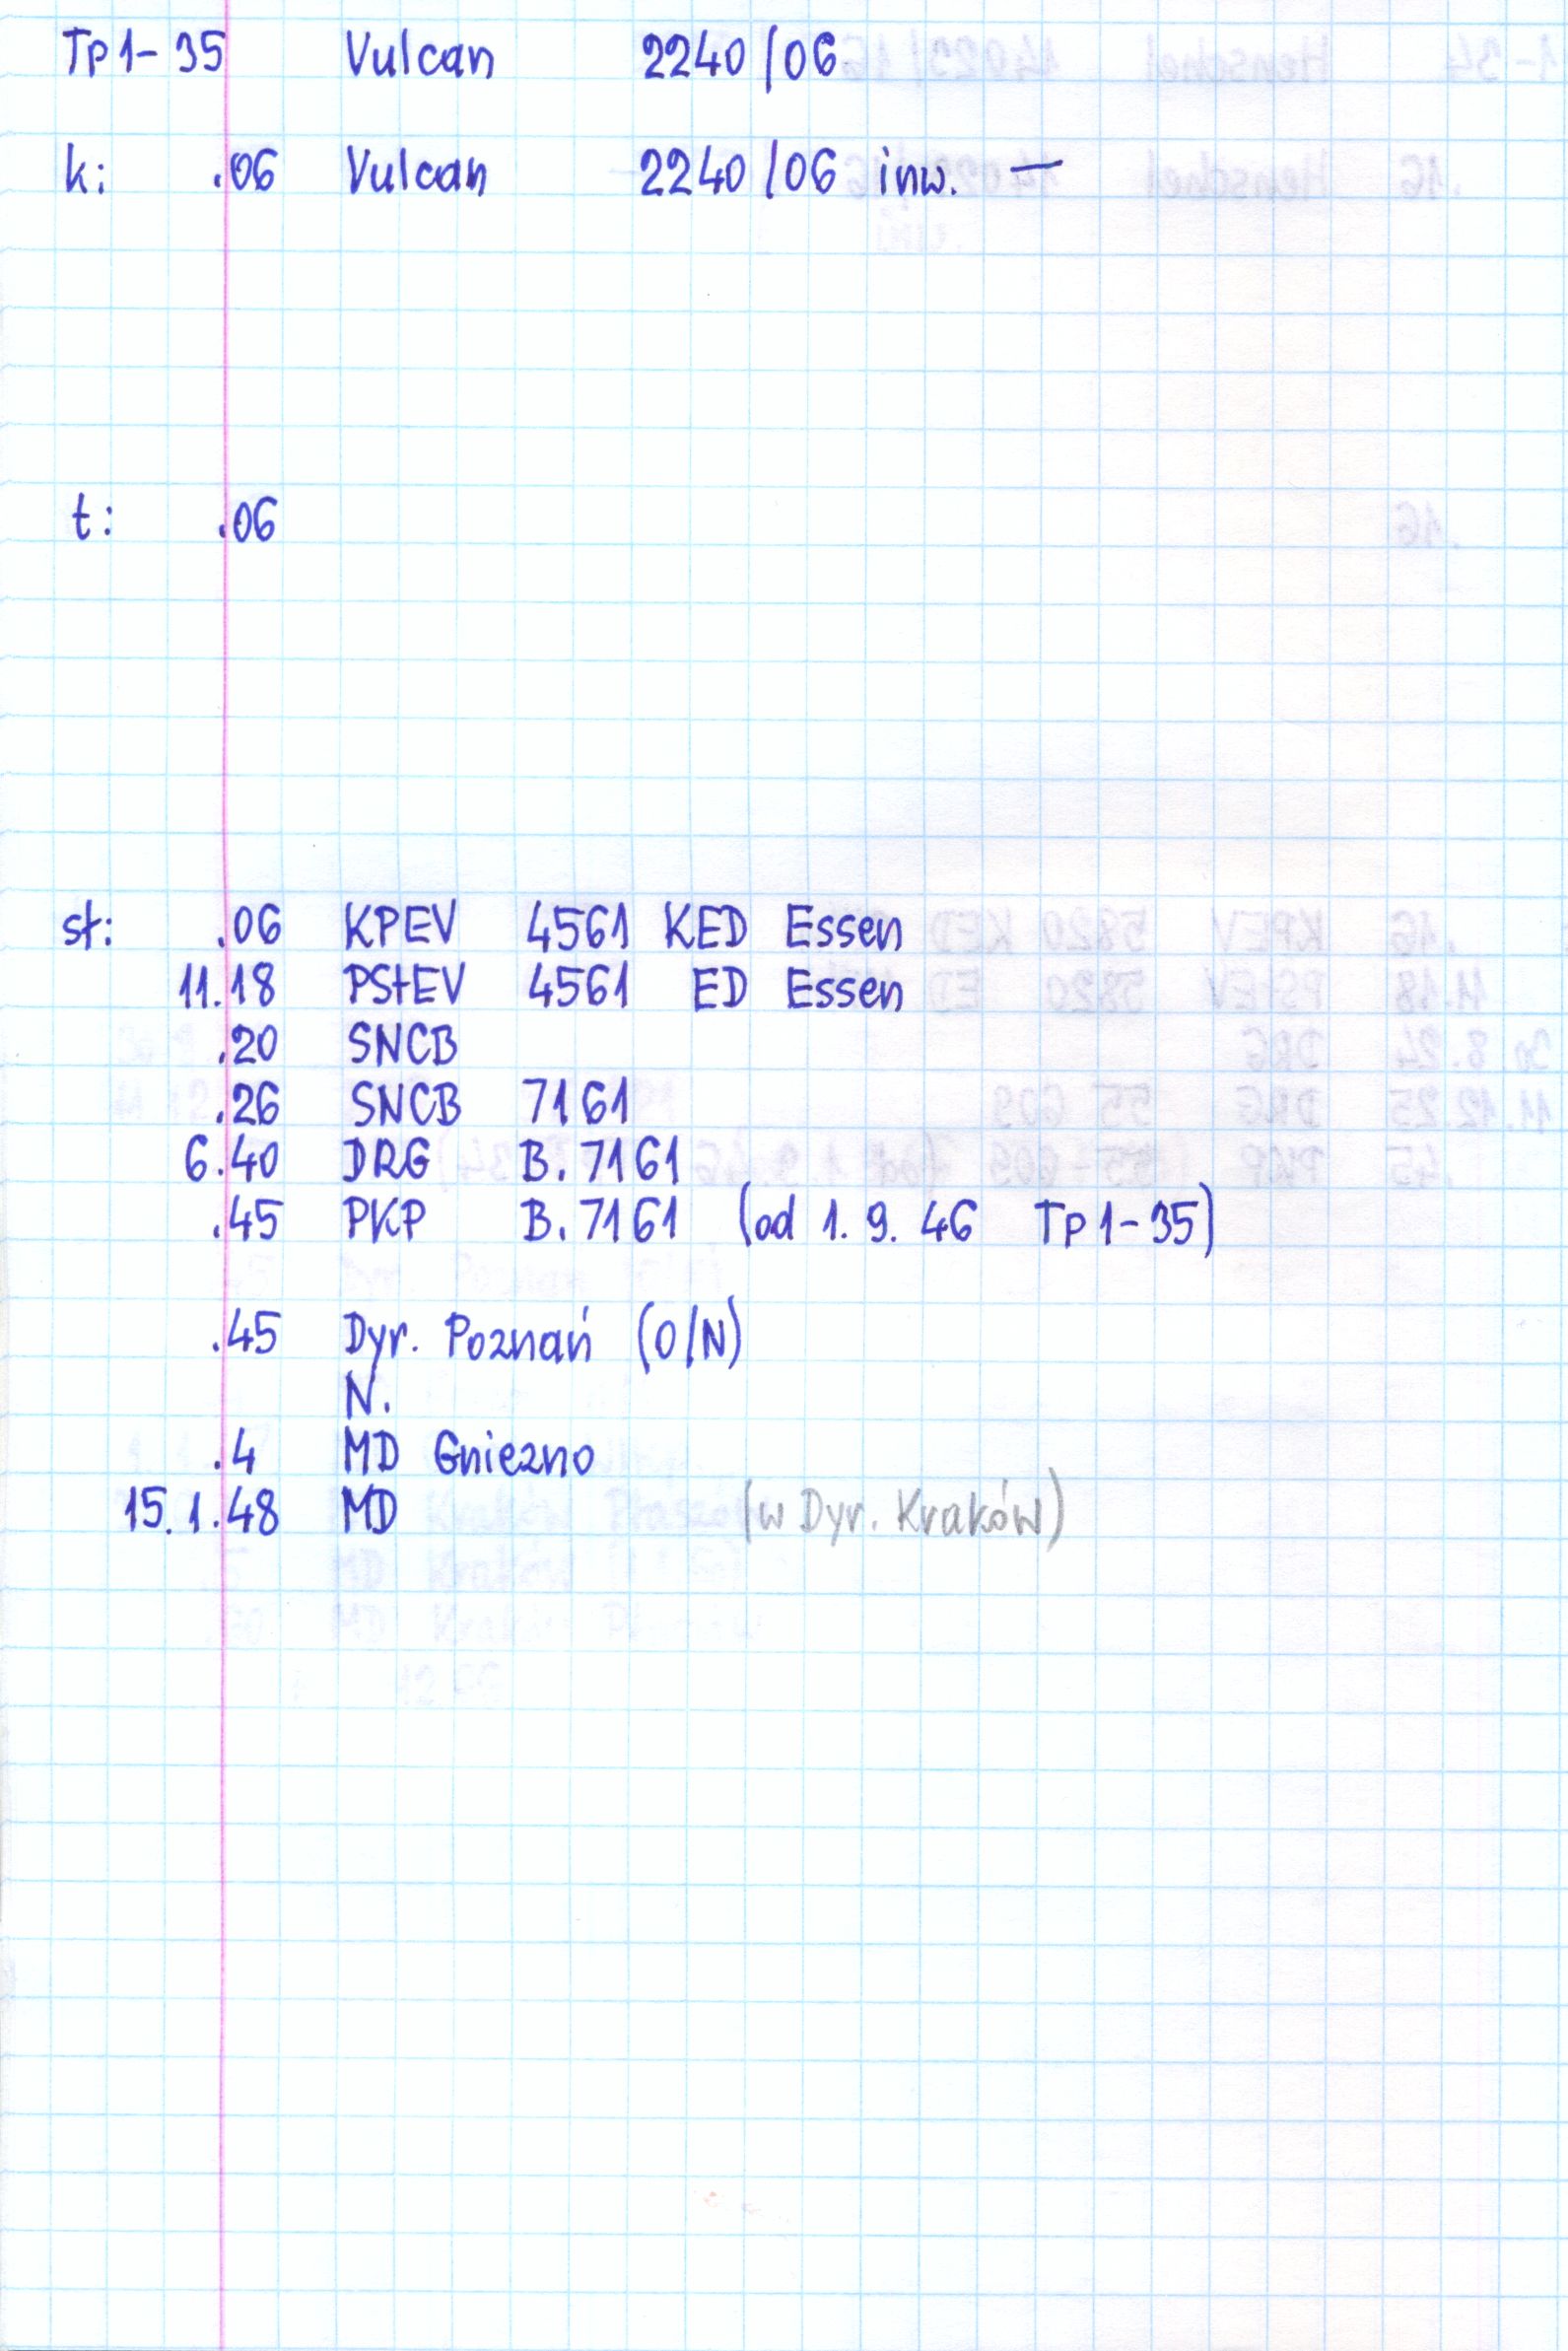 Tp1-35 Vulcan 2240/06
k: .06 Vulcan 2240/06 inw. —
t: .06
st: .06 KPEV 4561 KED Essen
11.18 PStEV 4561 ED Essen
.20 SNCB
.26 SNCB 7161
6.40 DRG B.7161
.45 PKP B.7161 (od 1.9.46 Tp1-35)
.45 Dyr. Poznań (O/N)
N.
.4 MD Gniezno
15.1.48 MD (w Dyr. Kraków)